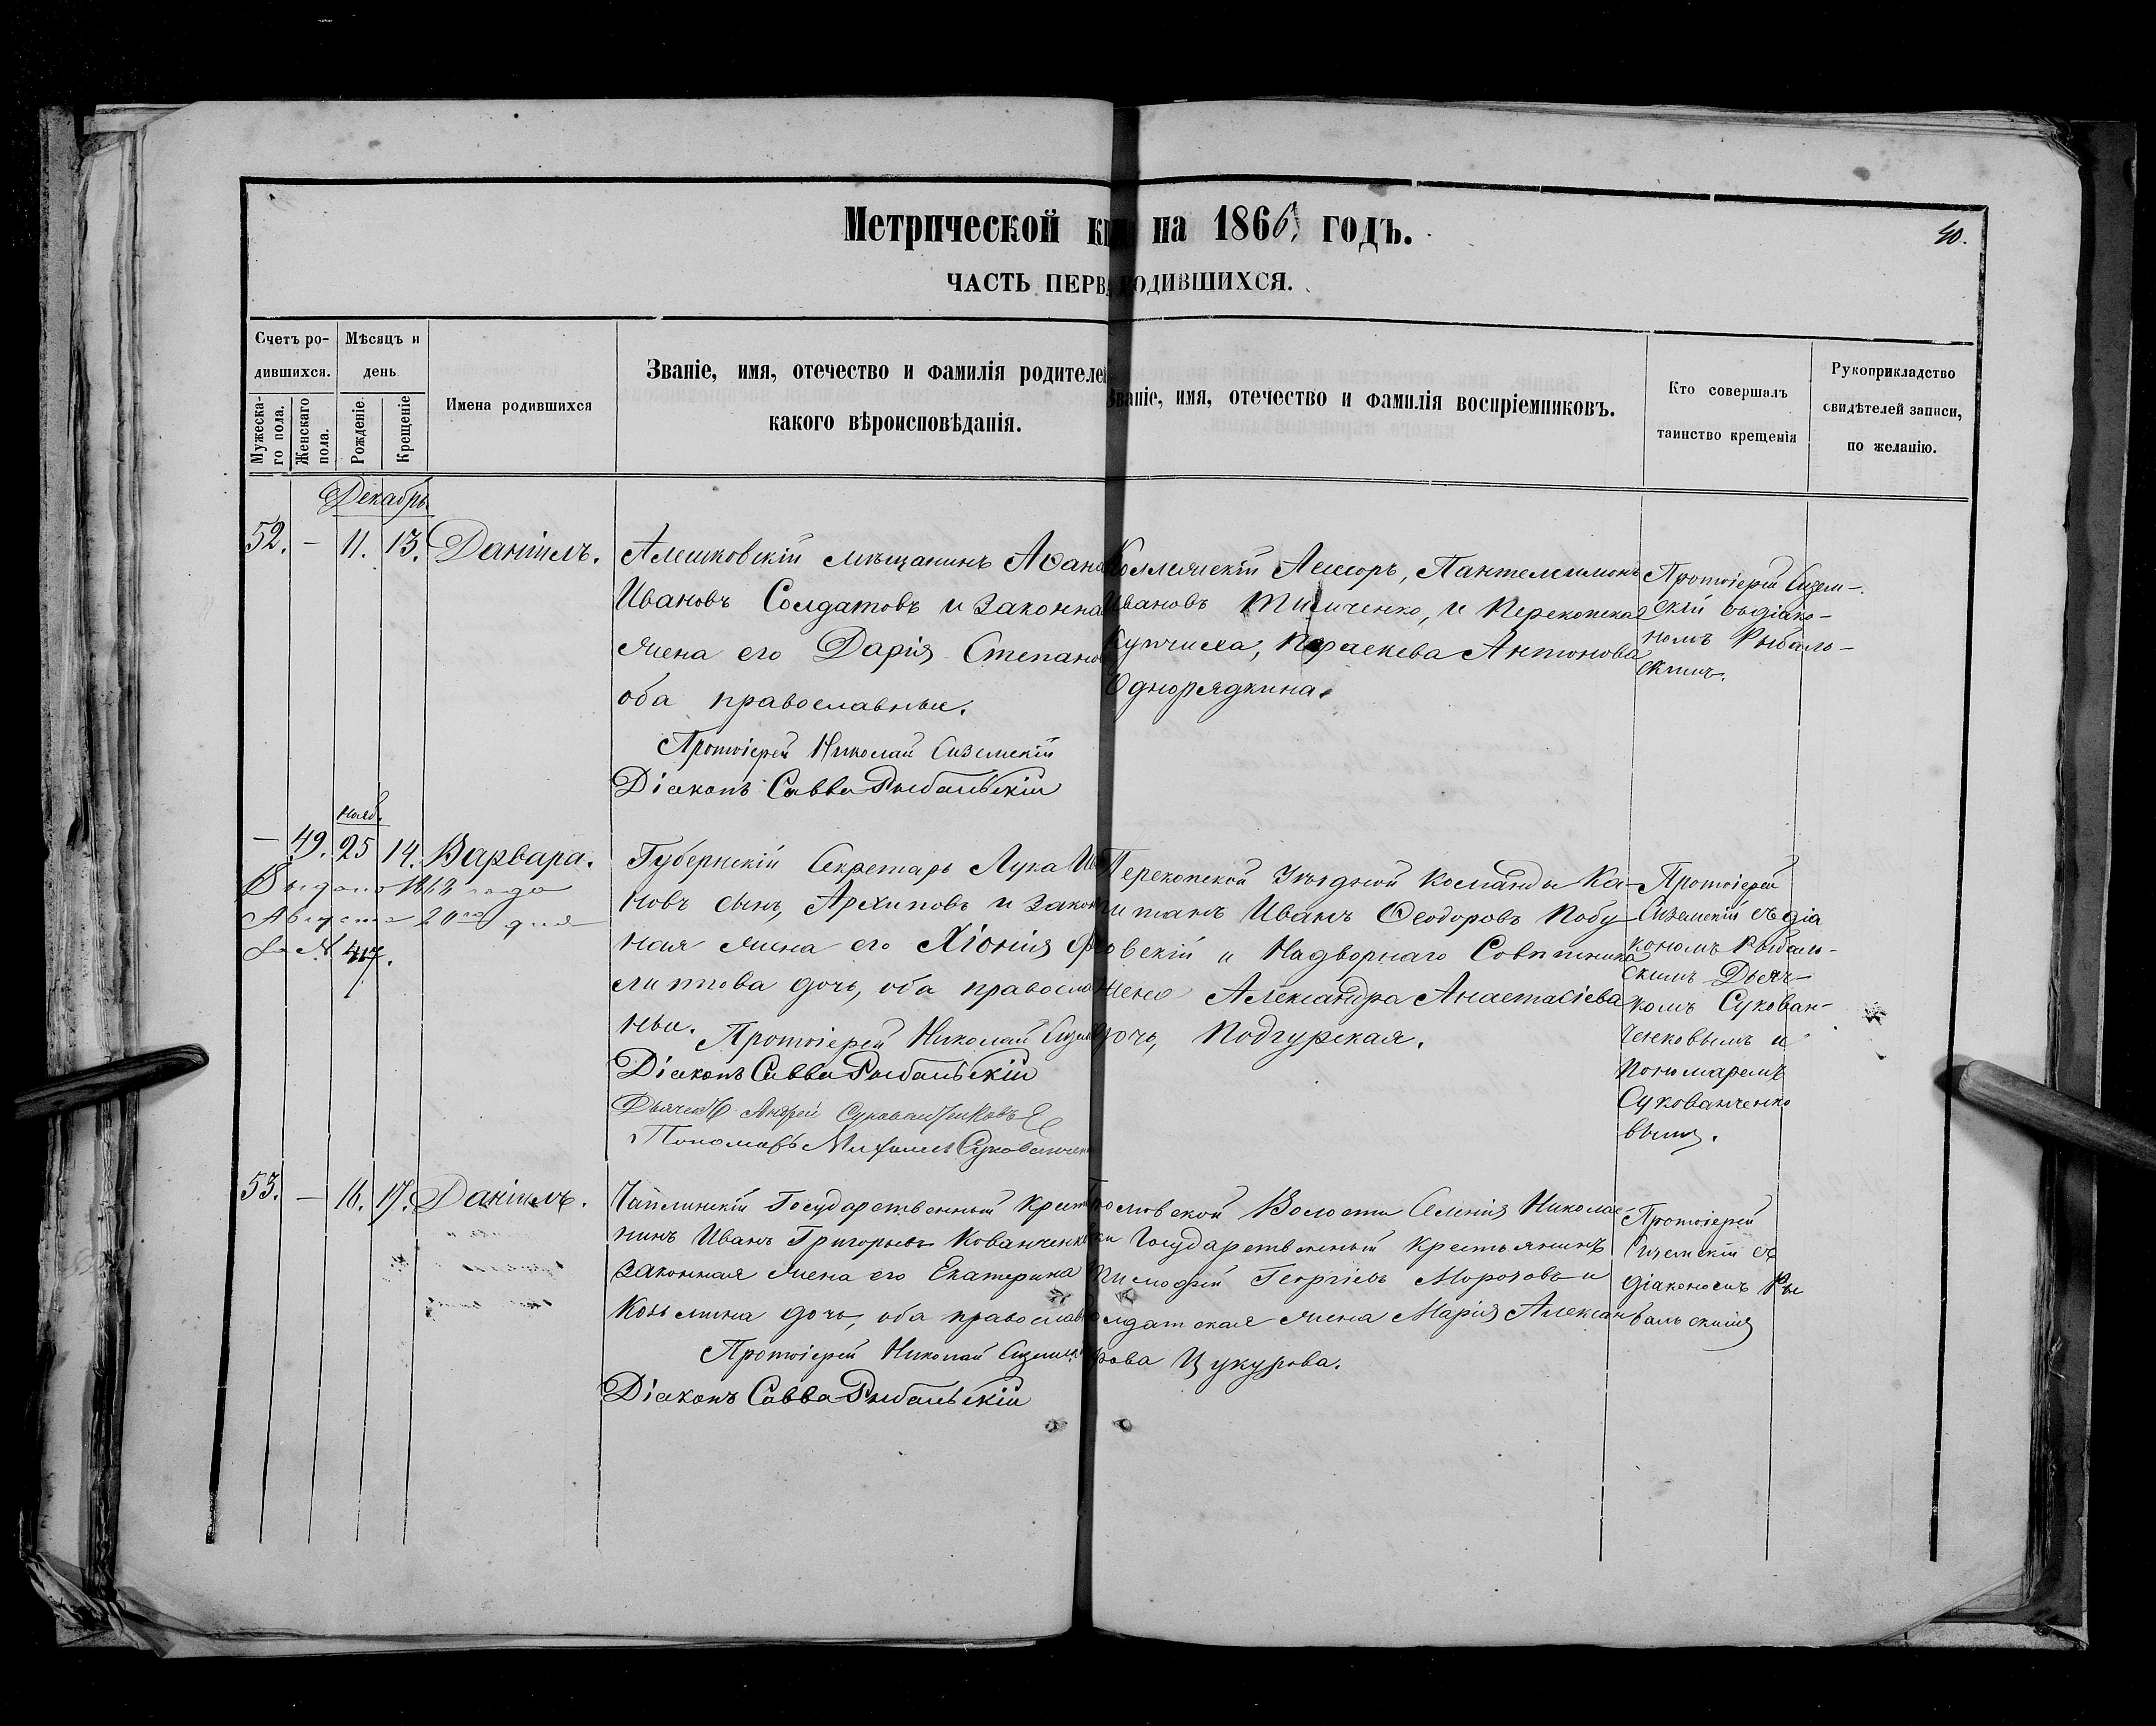 Метрической кн на 1866, годъ.
40.
ЧАСТЬ ПЕРВА РОДИВШИХСЯ.
Счетъ ро-
дившихся.
Мужеска-
го пола.
Женскаго
пола.
Мѣсяцъ и
день
Рожденіе.
Крещеніе
Имена родившихся
Званіе, имя, отечество и фамилія родителей
какого вѣроисповѣданія.
Званіе, имя, отечество и фамилія воспріемниковъ.
Кто совершалъ
таинство крещенія
Рукоприкладство
свидѣтелей записи,
по желанію.
Декабрь
52. — 11. 13. Даніилъ.
Алешковскій мѣщанинъ Аѳана
Ивановъ Солдатовъ и законна
жена его Дарія Степанов
оба православные.
Протоіерей Николай Сиземскій
Діаконъ Савва Рыбальскій
Коллежскій Ассесоръ, Пантелимонъ
Ивановъ Тимченко, и Перекопская
Купчиха, Параскева Антонова
Однорядкина.
Протоіерей Сизем-
скій съ діако-
номъ Рыбаль-
скимъ.
Нояб.
— 49. 25 14. Варвара.
Выдано 1868 года
Августа 20го дня
За № 417.
Губернскій Секретарь Лука Ива
новъ сынъ, Архиповъ и закон
ная жена его Хіонія Фи
липпова дочь, оба правосла
ные. Протоіерей Николай Сизем
Діаконъ Савва Рыбальскій
Дьячекъ Андрей Сукованченковъ
Пономарь Михаилъ Сукованчен
Перекопской Уѣздной Команды Ка-
питанъ Иванъ Ѳеодоровъ Побу
овскій и Надворнаго Совѣтника
жена Александра Анастасіева
дочь, Подгурская.
Протоіерей
Сиземскій съ діа
кономъ Рыбаль-
скимъ Дьяч-
комъ Сукован-
ченковымъ и
Пономаремъ
Сукованченко
вымъ.
53. — 16. 17. Даніилъ.
Чаплинскій Государственный Крест
нинъ Иванъ Григорьевъ Кованченк
законная жена его Екатерина
Козьмина дочь, оба православ
Протоіерей Николай Сиземск
Діаконъ Савва Рыбальскій
Волости Селенія Николае-
вки Государственный Крестьянинъ
Тимофей Георгіевъ Морозовъ и
Солдатская жена Марія Алексан
рова Цукурова.
Протоіерей
Сиземскій съ
діакономъ Ры
бальскимъ